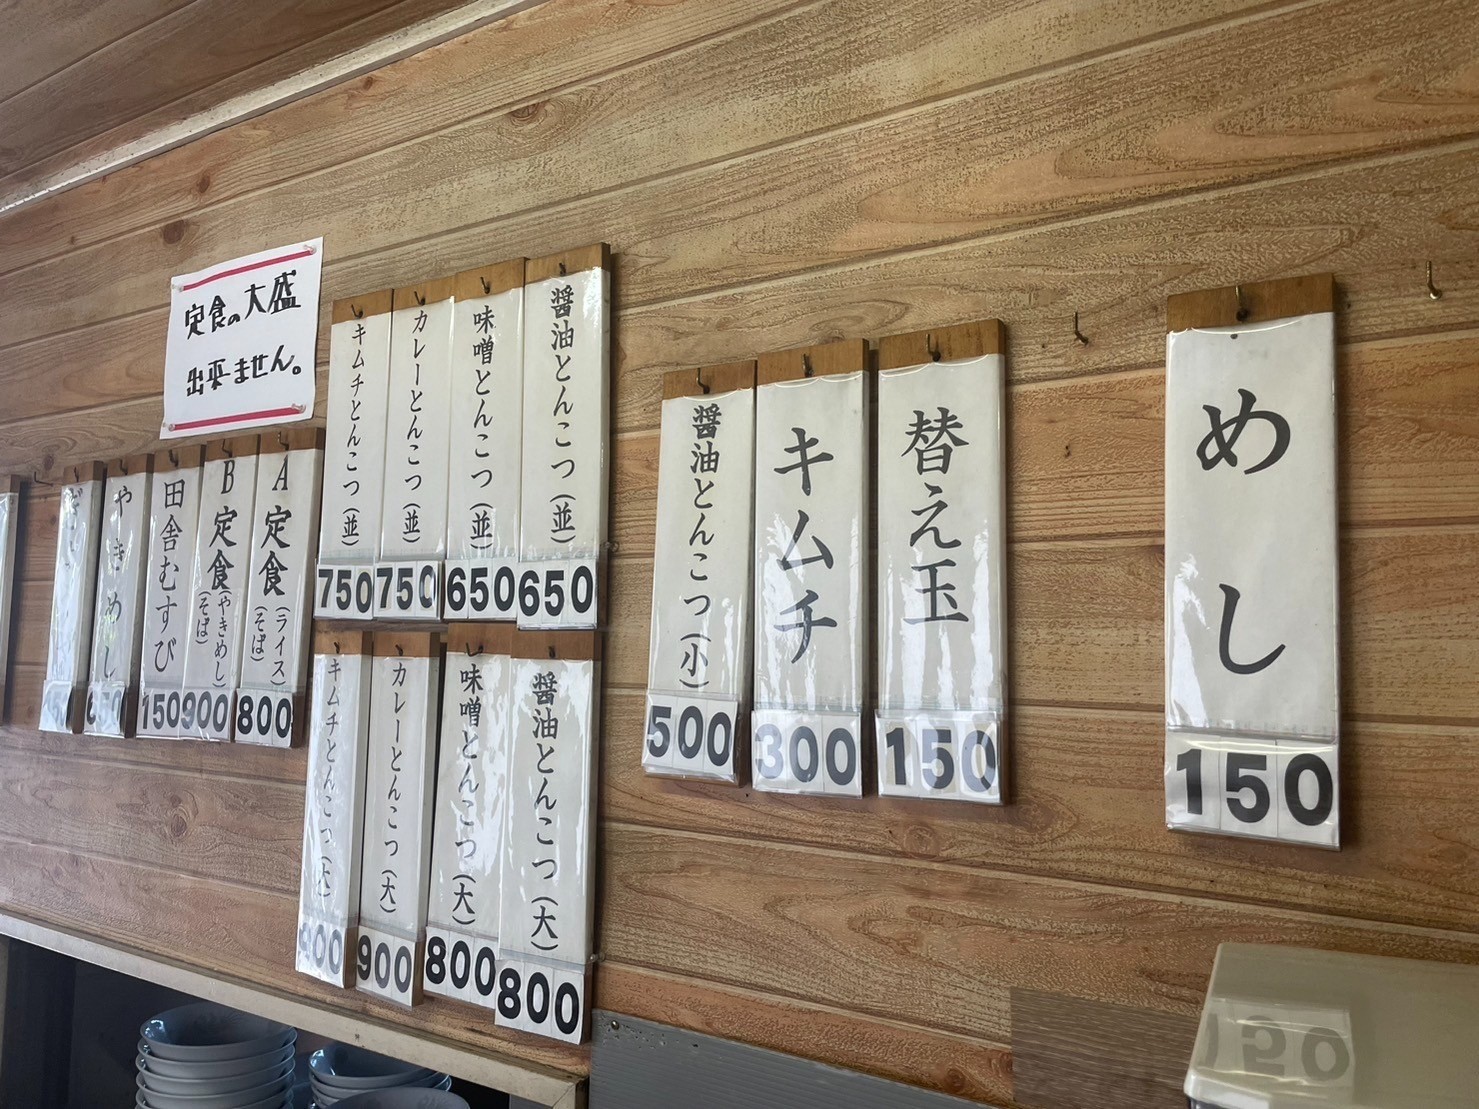 めし
150
替え玉
150
キムチ
300
醤油とんこつ(小)
500
醤油とんこつ(並)
650
味噌とんこつ(並)
650
カレーとんこつ(並)
750
キムチとんこつ(並)
750
醤油とんこつ(大)
800
味噌とんこつ(大)
800
カレーとんこつ(大)
900
キムチとんこつ(大)
900
定食の大盛
出来ません。
A定食(ライス)(そば)
800
B定食(やきめし)(そば)
900
田舎むすび
150
やきめし
650